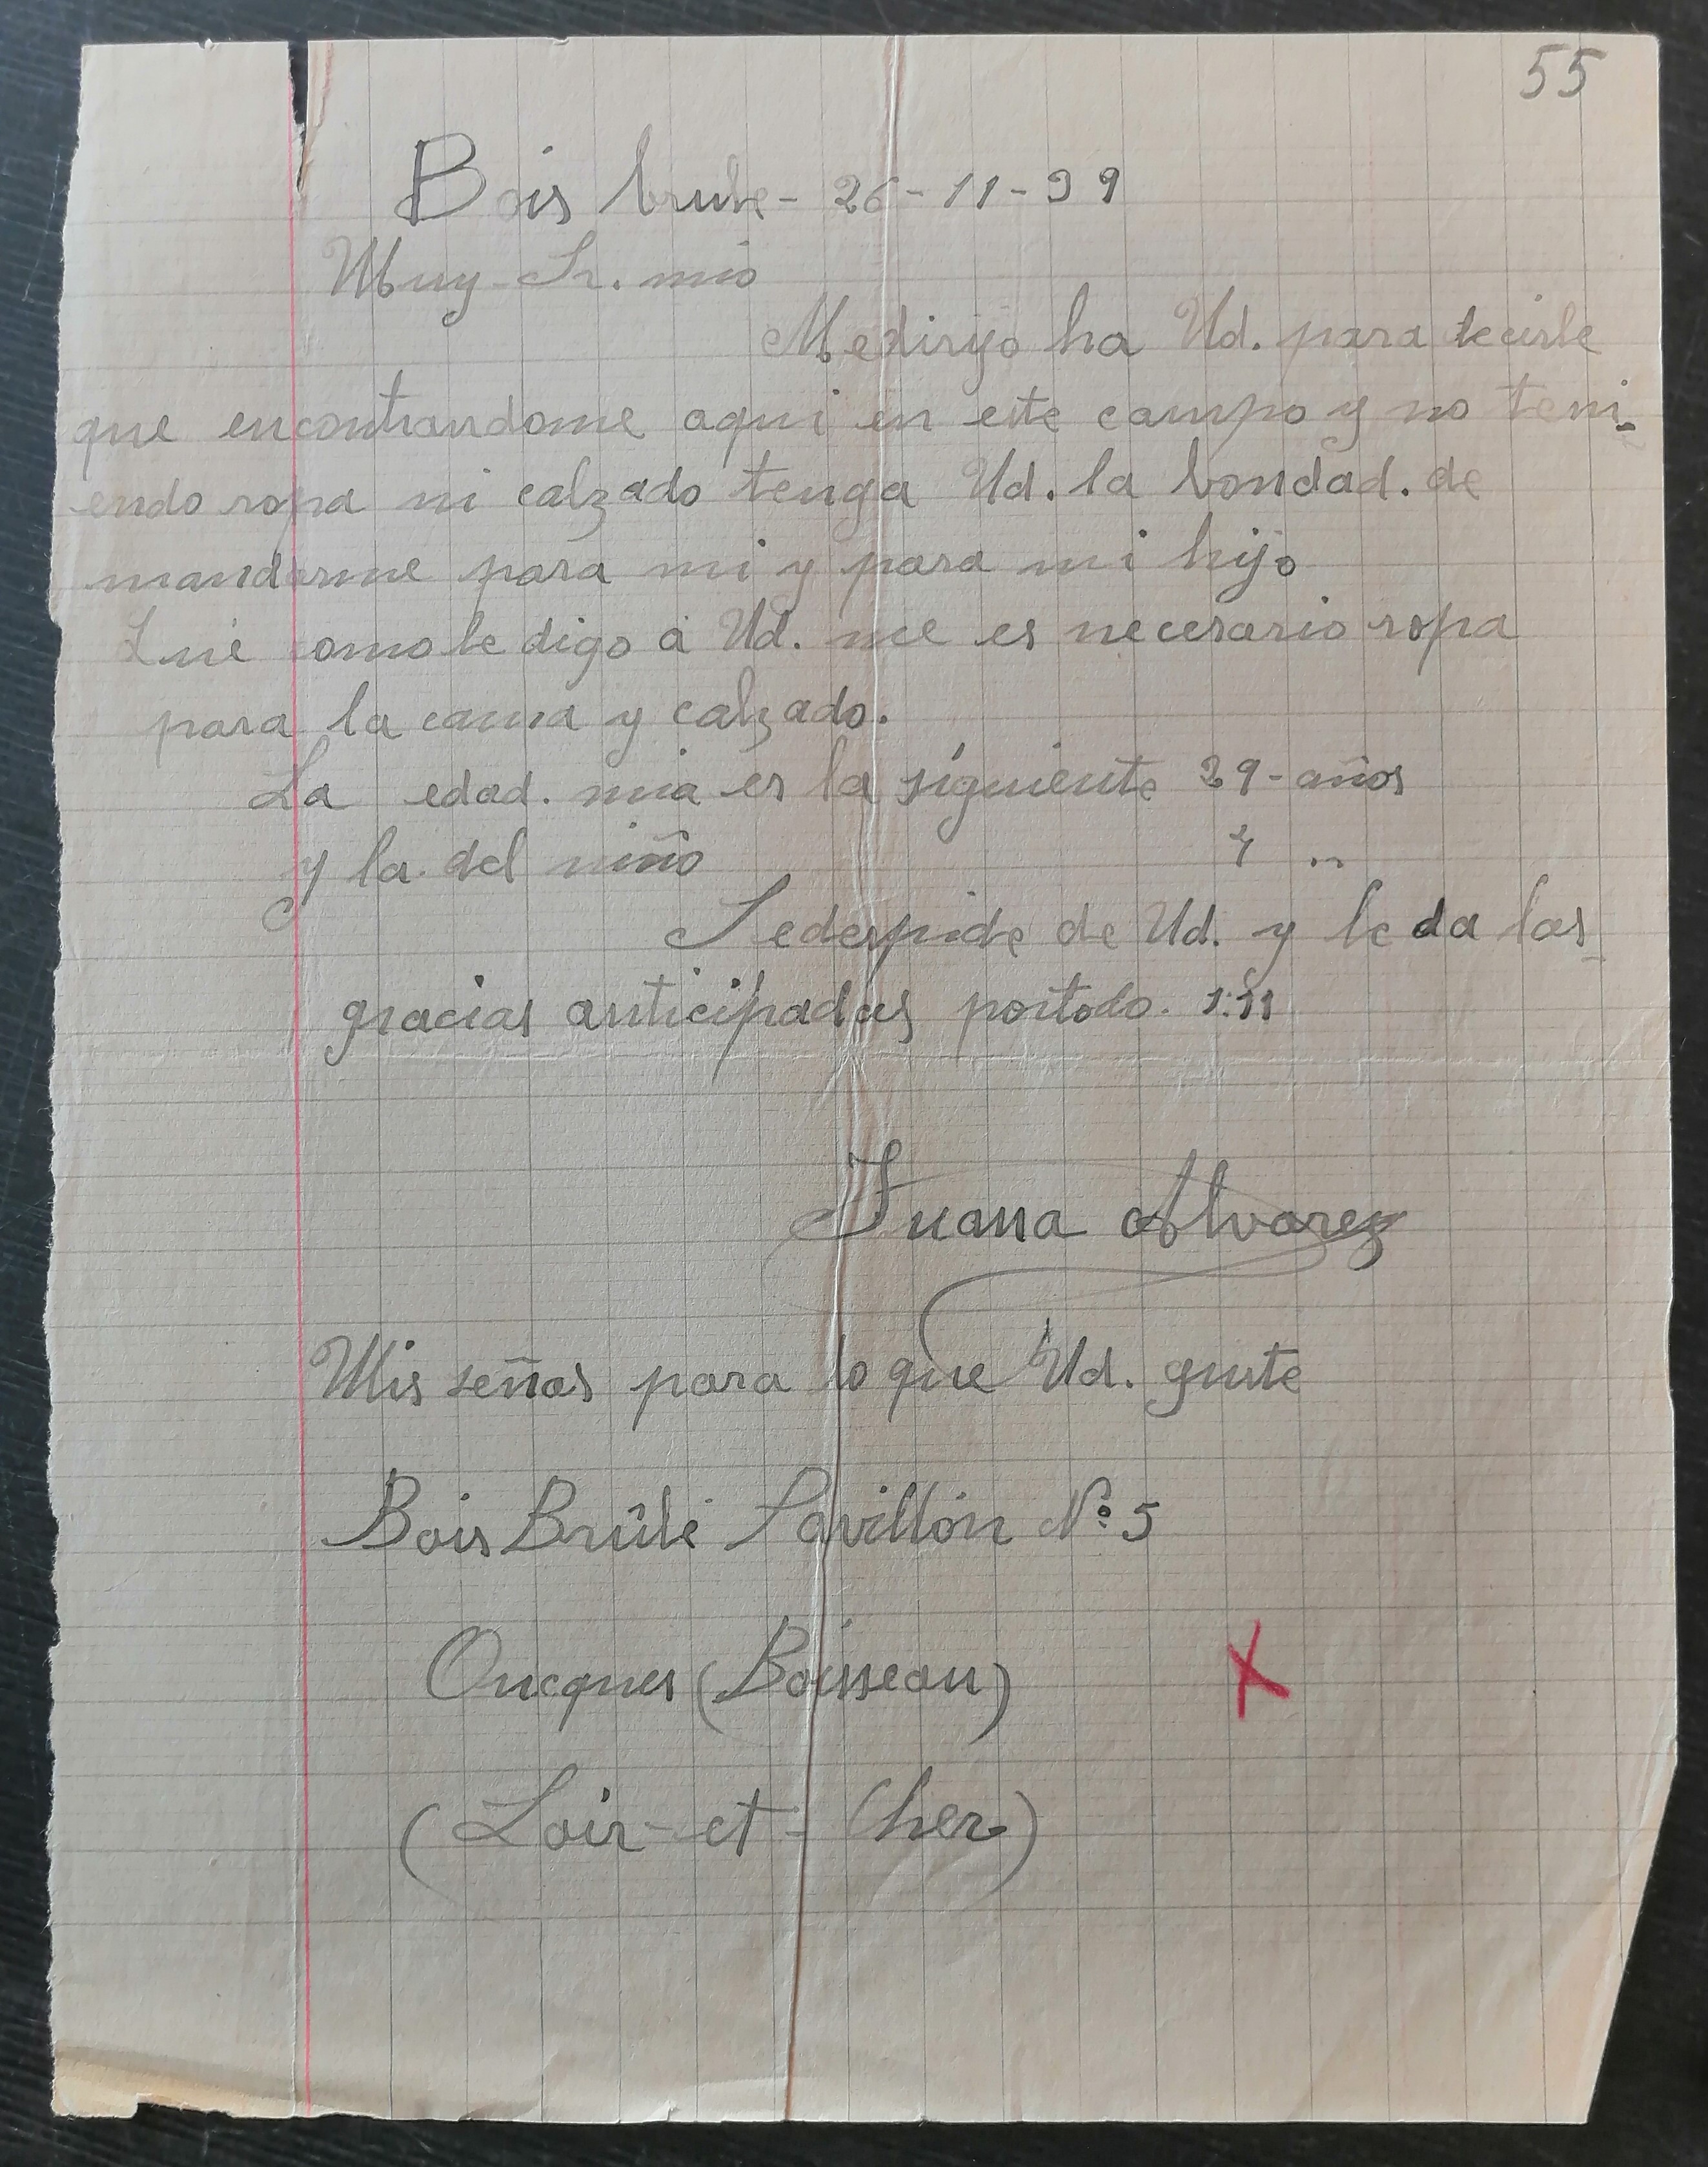 55
Bois brule - 26 - 11 - 39
Muy Sr. mio
Medirijo ha Ud. para decirle
que encontrandome aqui en este campo y no teni-
endo ropa ni calzado tenga Ud. la bondad. de
mandarme para mi y para mi hijo
Que como le digo á Ud. me es necesario ropa
para la cama y calzado.
La edad. mia es la siguiente 29 - años
y la del niño "
Sedespide de Ud. y le da las
gracias anticipadas portodo.
Juana Alvarez
Mis señas para lo que Ud. guste
Bois Brûlé Pavillón Nº 5
Oucques (Boisseau)
X
(Loir - et - Cher)